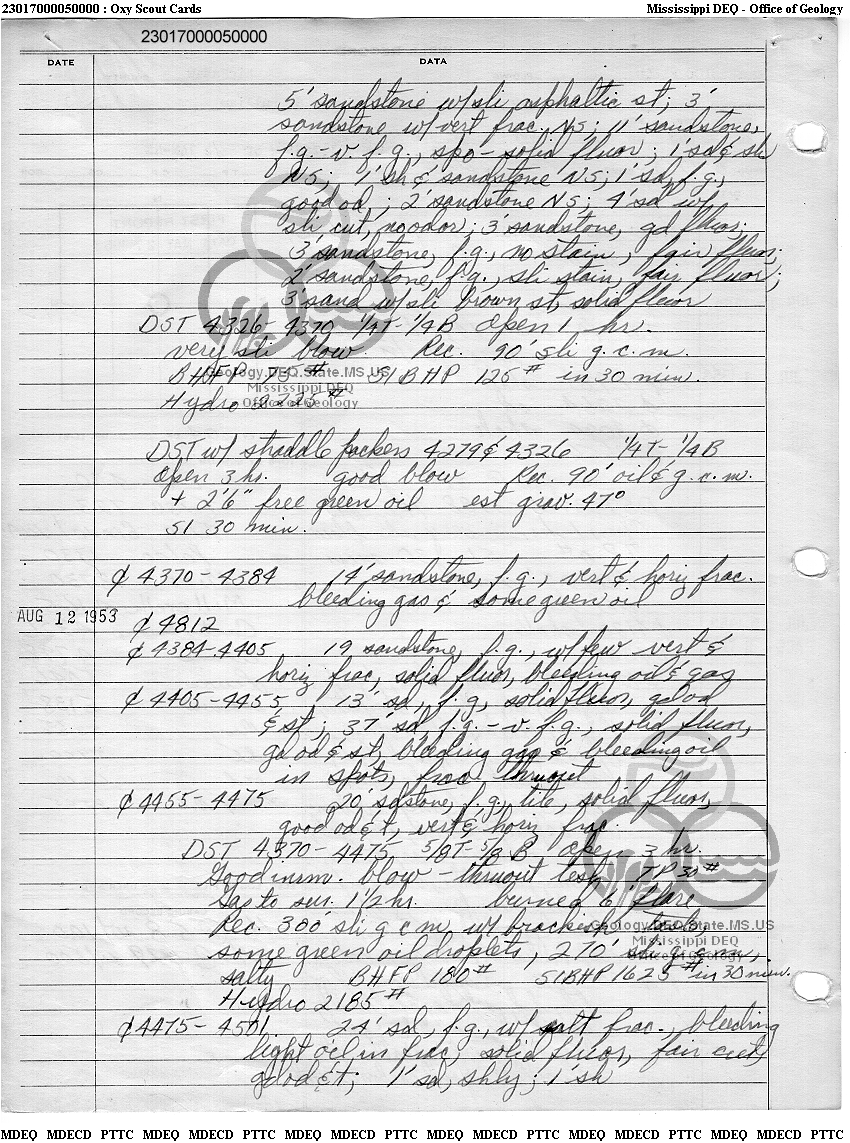 23017000050000 : Oxy Scout Cards
Mississippi DEQ - Office of Geology
23017000050000
DATE
DATA
5' sandstone w/ sli asphaltic st; 3'
sandstone w/ vert frac, NS; 11' sandstone,
f.g.-v.f.g., spo-solid fluor; 1' sd & sh
NS; 1' sh & sandstone NS; 1' sd, f.g.,
good od,; 2' sandstone NS; 4' sd w/
sli cut, no odor; 3' sandstone, gd fluor;
3' sandstone, f.g., no stain, fair fluor;
2' sandstone, f.g., sli stain, fair fluor;
3' sand w/ sli brown st, solid fluor
DST 4326-4370 1/4T-1/4B open 1 hr.
very sli blow. Rec. 90' sli g.c.m.
BHFP 75# SIBHP 125# in 30 min.
Geology.DEQ.State.MS.US
Mississippi DEQ
Office of Geology
Hydro 2225#
DST w/ straddle packers 4279 & 4326 1/4T-1/4B
open 3 hr. good blow Rec. 90' oil & g.c.m.
+ 2'6" free green oil est grav. 47°
SI 30 min.
₵ 4370-4384 14' sandstone, f.g., vert & horiz frac.
bleeding gas & some green oil
AUG 12 1953
₵ 4812
₵ 4384-4405 19 sandstone, f.g., w/ few vert &
horiz frac, solid fluor, bleeding oil & gas
₵ 4405-4455 13' sd, f.g., solid fluor, good od
& st; 37' sd f.g.-v.f.g., solid fluor,
good od & st, bleeding gas & bleeding oil
in spots, frac thruout
₵ 4455-4475 20' sdstone, f.g., tite, solid fluor,
good od & t, vert & horiz frac.
DST 4370-4475 5/8T-5/8B open 3 hr.
Good inrm. blow - thruout test TP 30#
Gas to sur. 1 1/2 hr. burned 6' flare
Rec. 300' sli g c m w/ brackish taste,
Geology.DEQ.State.MS.US
Mississippi DEQ
Office of Geology
some green oil droplets, 270' sli g.c.m.,
salty BHFP 180# SIBHP 1625# in 30 min.
Hydro 2185#
₵ 4475-4501 24' sd, f.g., w/ salt frac., bleeding
light oil in frac, solid fluor, fair cut,
good & t; 1' sd, shly; 1' sh
MDEQ MDECD PTTC MDEQ MDECD PTTC MDEQ MDECD PTTC MDEQ MDECD PTTC MDEQ MDECD PTTC MDEQ MDECD PTTC